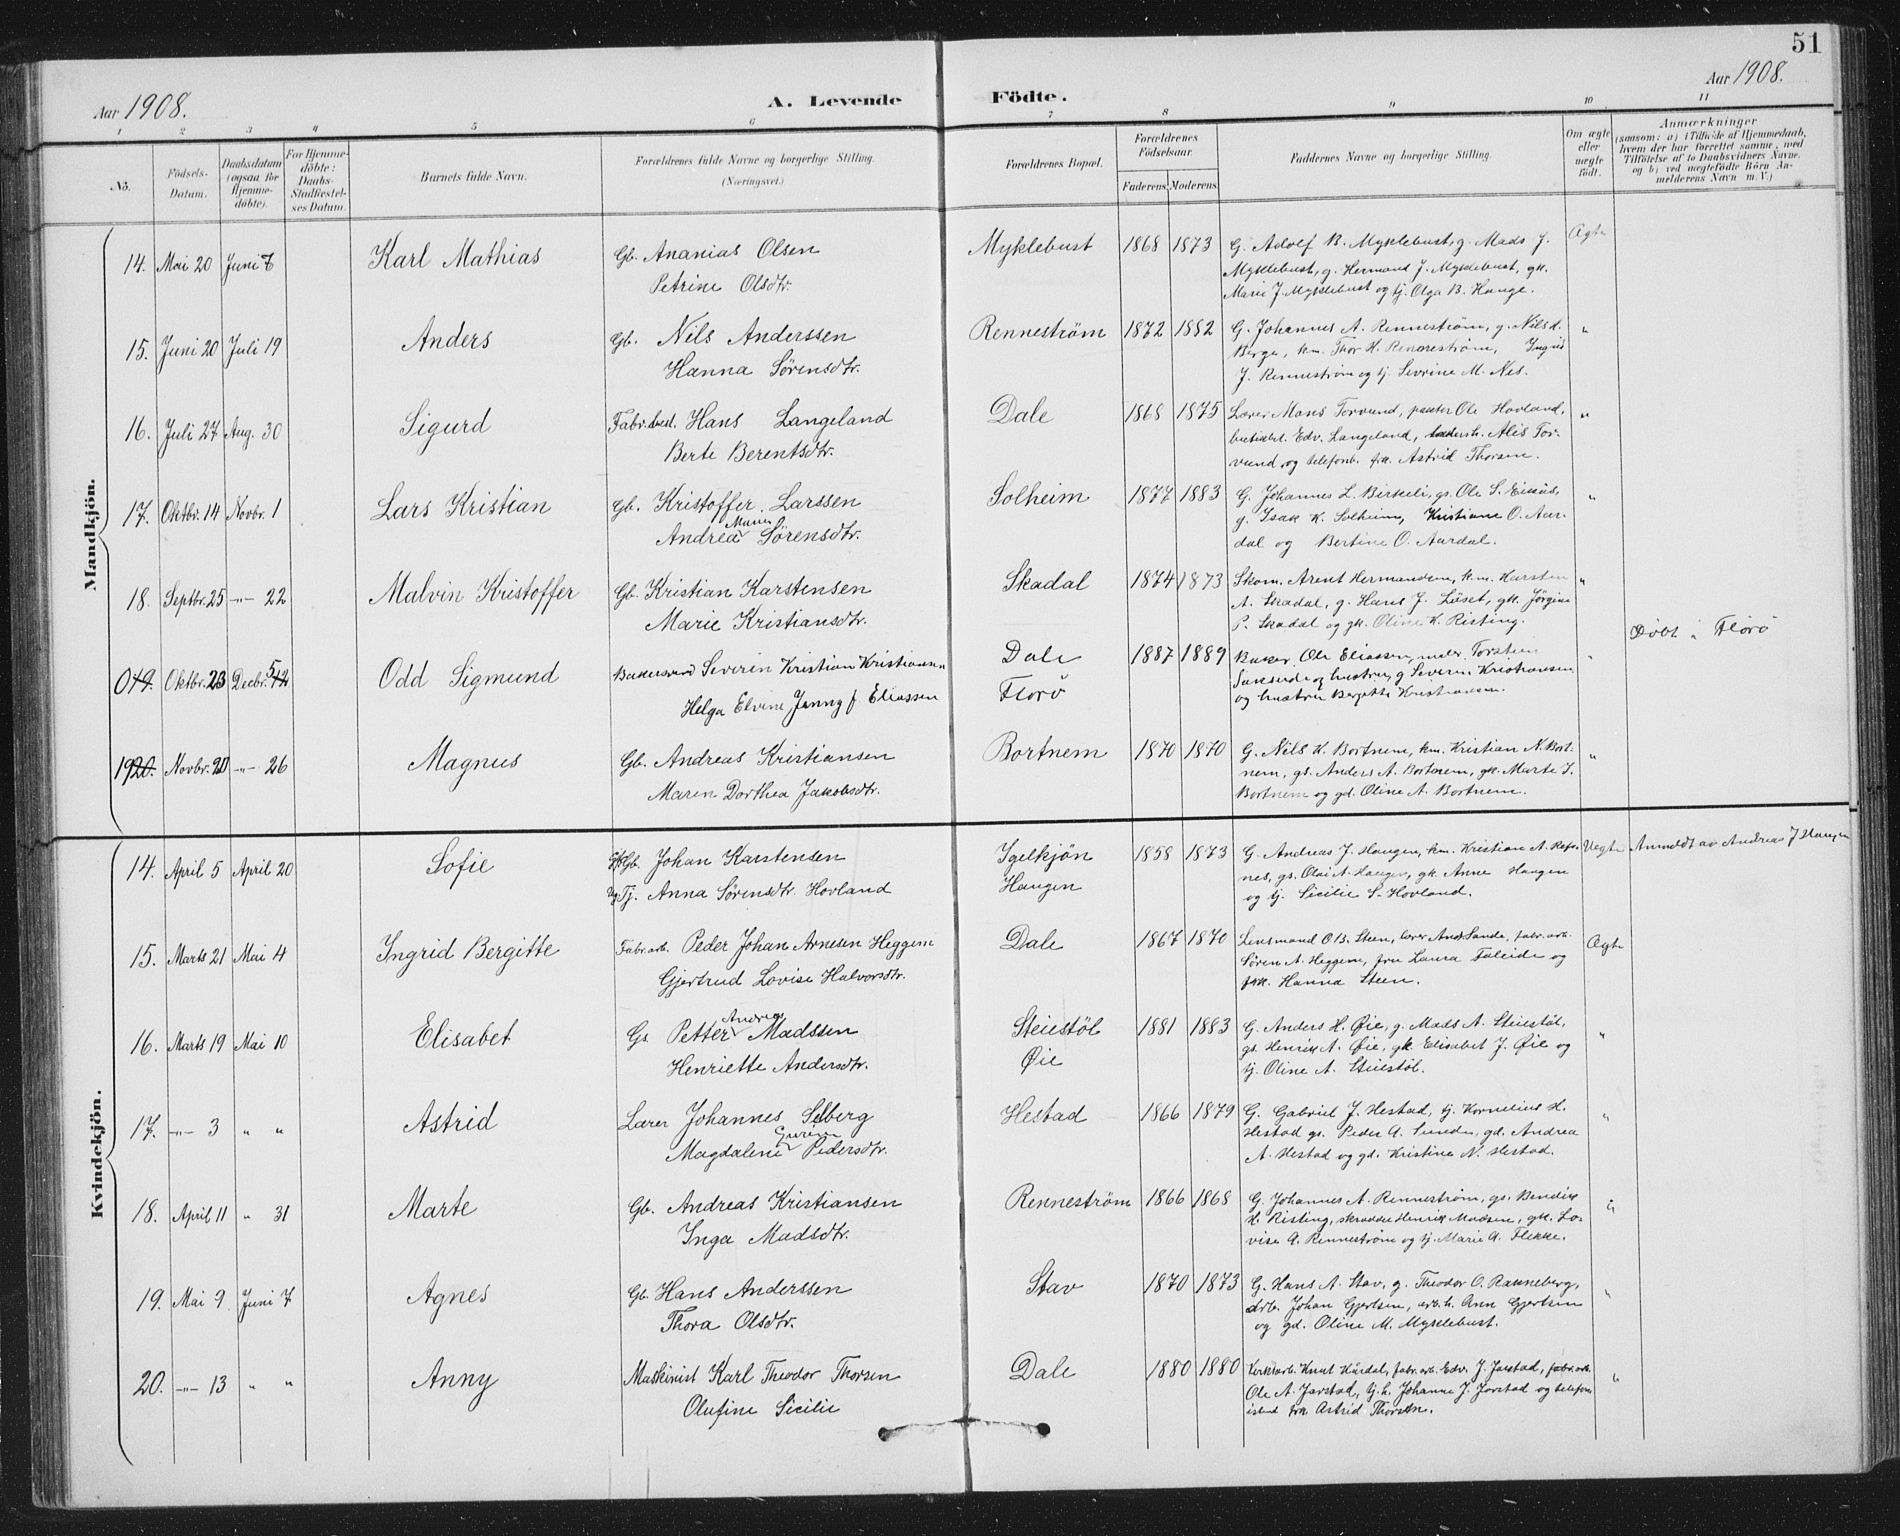 51
Aar 1908.
A. Levende Födte.
Aar 1908.
1 2 3 4 5 6 7 8 9 10 11
No.
Födsels-Datum.
Daabsdatum (ogsaa for Hjemme-döbte).
For Hjemme-döbte: Daabs-Stadfæstel-ses Datum.
Barnets fulde Navn.
Forældrenes fulde Navne og borgerlige Stilling. (Næringsvei.)
Forældrenes Bopæl.
Forældrenes Födselsaar.
Faderens. Moderens.
Faddernes Navne og borgerlige Stilling.
Om ægte eller uægte födt.
Anmærkninger (saasom: a) i Tilfælde af Hjemmedaab, hvem der har forrettet samme, med Tilföielse af to Daabsvidners Navne. og b) ved uægtefödte Börn An-melderens Navn m. V.)
Mandkjön.
14. Mai 20 Juni 8 Karl Mathias Gb. Ananias Olsen Myklebust 1868 1873 G. Adolf B. Myklebust, g. Mads J. Ægte
Petrine Olsdtr. Myklebust, g. Hermand J. Myklebust, gk.
Marie J. Myklebust og tj. Olga B. Hauge.
15. Juni 20 Juli 19 Anders Gb. Nils Anderssen Renneström 1872 1882 G. Johannes A. Renneström, g. Nils d. "
Hanna Sörensdtr. Berge, km. Thor H. Renneström, Ingrid
J. Renneström og tj. Sevrine M. Nes.
16. Juli 27 Aug. 30 Sigurd Fabr.best. Hans Langeland Dale 1868 1875 Lærer Mons Torvund, pastor Ole Hovland, "
Berte Berentsdtr. Edv. Langeland, Alis Tor-
vund og telefonb. frk. Astrid Thorsen.
17. Oktbr. 14 Novbr. 1 Lars Kristian Gb. Kristoffer Larssen Solheim 1877 1883 G. Johannes L. Birkeli, gs. Ole S. Eikås, "
Andrea Maria Sörensdtr. g. Isak K. Solheim, Kristiane O. Aar-
dal og Bertine O. Aardal.
18. Septbr. 25 -"- 22 Malvin Kristoffer Gb. Kristian Karstensen Skadal 1874 1873 Skom. Arent Hermandsen, km. Karsten "
Marie Kristiansdtr. A. Skadal, g. Hans J. Löset, gk. Jörgine
P. Skadal og gk. Oline K. Risting.
019. Oktbr. 23 Decbr. 5 12 Odd Sigmund Bakersvend Severin Kristian Kristiansen Dale 1887 1889 Baker Ole Eliassen, Torstein " Döbt i Florö
Helga Elvine Jenny f. Eliassen Florö og hustru, g Severin Kristiansen
og hustru Bergitte Kristiansen.
1920. Novbr. 20 -"- 26 Magnus Gb. Andreas Kristiansen Bortnem 1870 1870 G. Nils K. Bortnem, km. Kristian N. Bort- "
Maren Dorthea Jakobsdtr. nem, gs. Anders A. Bortnem, gk. Marte I.
Bortnem og gd. Oline A. Bortnem.
Kvindekjön.
14. April 5 April 20 Sofie Gb. Johan Karstensen Igelkjön 1858 1873 G. Andreas J. Haugen, km. Kristian A. Refs- Uegte Anmeldt av Andreas J Haugen
Tj. Anna Sörensdtr. Hovland Haugen nes, gs. Olai A. Haugen, gk. Anne Haugen
og tj. Sicilie S. Hovland.
15. Marts 21 Mai 4 Ingrid Bergitte Fabr.arb. Peder Johan Arnesen Heggem Dale 1867 1870 Lensmand O.B. Steen, lærer And. Sande, fabr.arb. Ægte
Gjertrud Lovise Halvorsdtr. Sören A. Heggem, fru Laura Faleide og
frk. Hanna Steen.
16. Marts 19 Mai 10 Elisabet Gs Petter Andreas Madssen Steiestöl 1881 1883 G. Anders H. Øie, g. Mads A. Steiestöl, "
Henriette Andersdtr. Øie gs. Henrik A. Øie, gk Elisabet J. Øie og
tj. Oline A. Steiestöl.
17. -"- 3 " " Astrid Lærer Johannes Selberg Hestad 1866 1879 G. Gabriel J. Hestad, tj. Kornelius H. "
Magdalene Pedersdtr. Hestad gs. Peder A. Sunde, gd. Andrea
A. Hestad og gd. Kristine N. Hestad.
18. April 11 " 31 Marte Gb. Andreas Kristiansen Renneström 1866 1868 G. Johannes A. Renneström, gs. Bendik "
Inga Madsdtr. H. Risting, skrædder Henrik Madsen, gk. Lo-
vise A. Renneström og tj. Marie A. Flekke.
19. Mai 9 Juni 7 Agnes Gb. Hans Anderssen Stav 1870 1873 G. Hans A. Stav, g. Theodor O. Ramneberg, "
Thora Olsdtr. arb. Johan Gjertsen, arb.h. Ann Gjertsen
og gd. Oline M. Myklebust.
20. -"- 13 " " Anny Maskinist Karl Theodor Thorsen Dale 1880 1880 Verksarb. Knut Hårdal, fabr.arb. Edv. J. Jarstad, fabr.arb. "
Olufine Sicilie Ole A. Jarstad, tj.h. Johanne J. Jarstad og telefon
frk Astrid Thorsen.